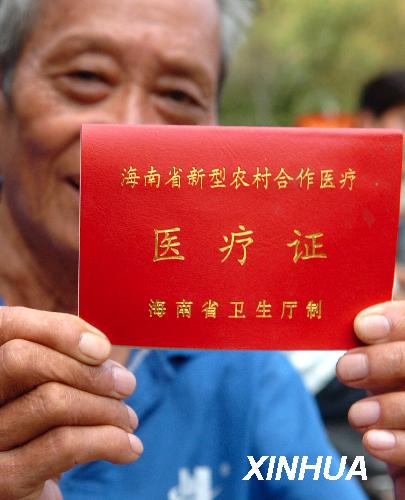 海南省新型农村合作医疗
医疗证
海南省卫生厅制
XINHUA